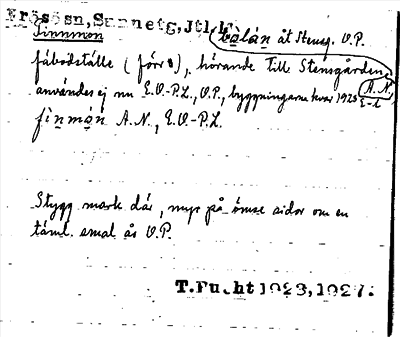 Frösösn, Sunnetg, Jtl.
Finnmon
bȧlán åt Stensg. O.P.
fäbodställe (förr), hörande till Stensgården A.N.
användes ej nu E.O.-P.L., O.P., byggningarna kvar 1923
finmȯn A.N., E.O.-P.L.
Stygg mark där, myr på ömse sidor om en
täml. smal ås O.P.
T.Fucht 1923, 1927.